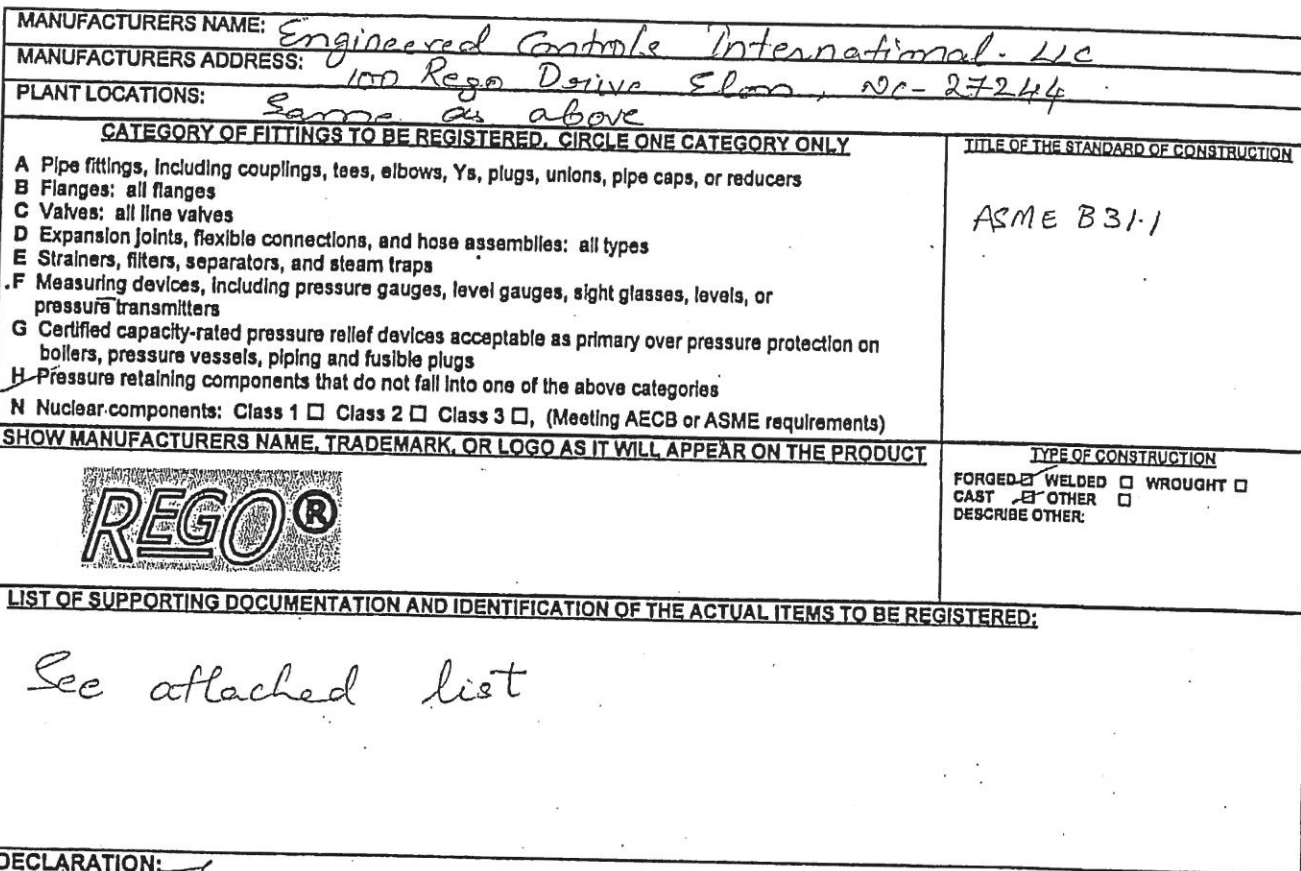 MANUFACTURERS NAME: Engineered Controls International. LLC
MANUFACTURERS ADDRESS: 100 Rego Drive Elon, NC-27244
PLANT LOCATIONS: Same as above
CATEGORY OF FITTINGS TO BE REGISTERED. CIRCLE ONE CATEGORY ONLY
A Pipe fittings, including couplings, tees, elbows, Ys, plugs, unions, pipe caps, or reducers
B Flanges: all flanges
C Valves: all line valves
D Expansion joints, flexible connections, and hose assemblies: all types
E Strainers, filters, separators, and steam traps
F Measuring devices, including pressure gauges, level gauges, sight glasses, levels, or
pressure transmitters
G Certified capacity-rated pressure relief devices acceptable as primary over pressure protection on
boilers, pressure vessels, piping and fusible plugs
H Pressure retaining components that do not fall into one of the above categories
N Nuclear components: Class 1 ☐ Class 2 ☐ Class 3 ☐, (Meeting AECB or ASME requirements)
TITLE OF THE STANDARD OF CONSTRUCTION
ASME B31.1
SHOW MANUFACTURERS NAME, TRADEMARK, OR LOGO AS IT WILL APPEAR ON THE PRODUCT
REGO®
TYPE OF CONSTRUCTION
FORGED ☑ WELDED ☐ WROUGHT ☐
CAST ☑ OTHER ☐
DESCRIBE OTHER:
LIST OF SUPPORTING DOCUMENTATION AND IDENTIFICATION OF THE ACTUAL ITEMS TO BE REGISTERED:
See attached list
DECLARATION: